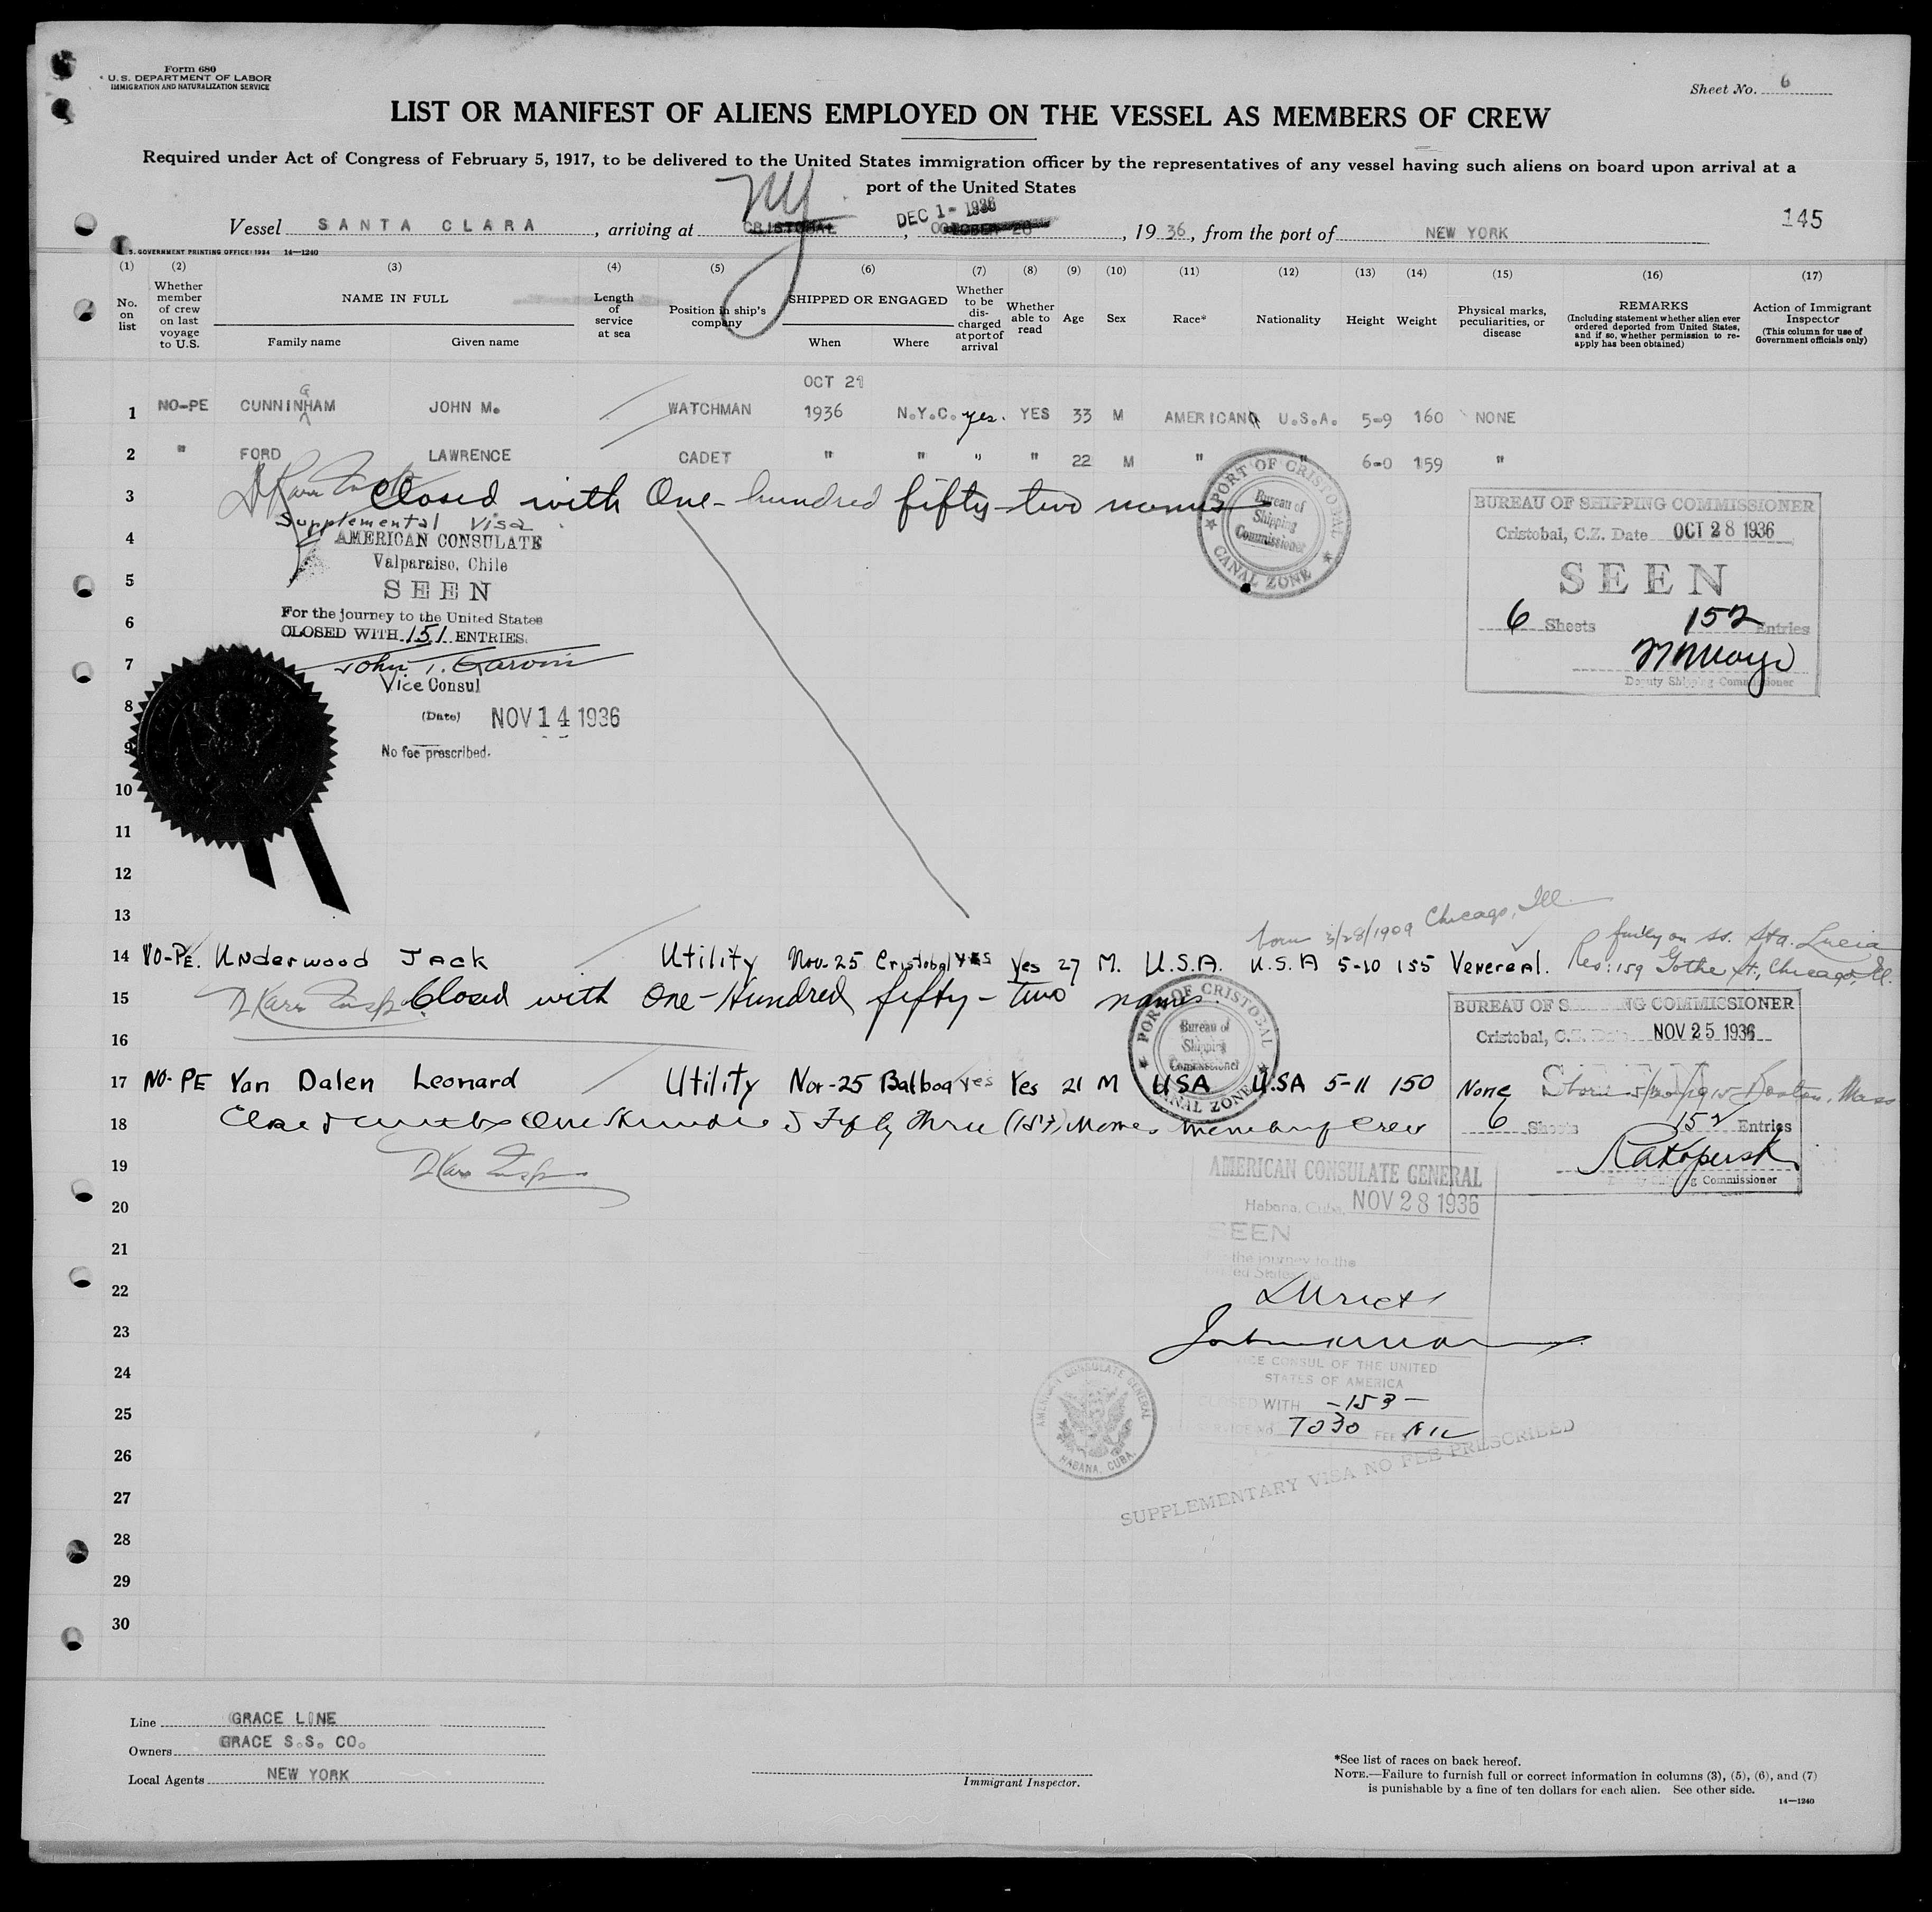 Form 680
U.S. DEPARTMENT OF LABOR
IMMIGRATION AND NATURALIZATION SERVICE
Sheet No. 6
LIST OR MANIFEST OF ALIENS EMPLOYED ON THE VESSEL AS MEMBERS OF CREW
Required under Act of Congress of February 5, 1917, to be delivered to the United States immigration officer by the representatives of any vessel having such aliens on board upon arrival at a
port of the United States
NY
DEC 1- 1936
145
Vessel SANTA CLARA, arriving at CRISTOBAL, OCTOBER 28, 1936, from the port of NEW YORK
U.S. GOVERNMENT PRINTING OFFICE: 1934 14—1240
(1) (2) (3) (4) (5) (6) (7) (8) (9) (10) (11) (12) (13) (14) (15) (16) (17)
No. on list
Whether member of crew on last voyage to U.S.
NAME IN FULL
Family name Given name
Length of service at sea
Position in ship's company
SHIPPED OR ENGAGED
When Where
Whether to be discharged at port of arrival
Whether able to read
Age
Sex
Race*
Nationality
Height
Weight
Physical marks, peculiarities, or disease
REMARKS
(Including statement whether alien ever ordered deported from United States, and if so, whether permission to reapply has been obtained)
Action of Immigrant Inspector
(This column for use of Government officials only)
OCT 21
1 NO-PE CUNNINGHAM JOHN M. WATCHMAN 1936 N.Y.C. yes. YES 33 M AMERICAN U.S.A. 5-9 160 NONE
2 " FORD LAWRENCE CADET " " " " 22 M " " 6-0 159 "
3 Closed with One-hundred fifty-two names
Supplemental Visa
4 AMERICAN CONSULATE
Valparaiso, Chile
5 SEEN
For the journey to the United States
6 CLOSED WITH 151 ENTRIES.
7 John T. Garvin
Vice Consul
8 (Date) NOV 14 1936
9 No fee prescribed.
PORT OF CRISTOBAL
Bureau of Shipping Commissioner
CANAL ZONE
BUREAU OF SHIPPING COMMISSIONER
Cristobal, C.Z. Date OCT 28 1936
SEEN
6 Sheets 152 Entries
Deputy Shipping Commissioner
10
11
12
13
born 3/28/1909 Chicago, Ill.
14 NO-PE. Underwood Jack Utility Nov-25 Cristobal yes Yes 27 M. U.S.A. U.S.A 5-10 155 Venereal. on ss. Sta. Lucia
Res: 159 Gothe St., Chicago, Ill.
15 Closed with One-Hundred fifty-two names.
16
PORT OF CRISTOBAL
Bureau of Shipping Commissioner
CANAL ZONE
BUREAU OF SHIPPING COMMISSIONER
Cristobal, C.Z. Date NOV 25 1936
SEEN
17 NO-PE Van Dalen Leonard Utility Nov-25 Balboa yes Yes 21 M USA USA 5-11 150 None born Boston, Mass
6 Sheets 152 Entries
Deputy Shipping Commissioner
18 Closed with One Hundred Fifty Three (153) Names Crew
19
AMERICAN CONSULATE GENERAL
20 Habana, Cuba, NOV 28 1936
21 SEEN
For the journey to the
United States
22
23
VICE CONSUL OF THE UNITED
24 STATES OF AMERICA
25 CLOSED WITH -153-
SERVICE No. 7030 FEE NIL
AMERICAN CONSULATE GENERAL
HABANA, CUBA.
SUPPLEMENTARY VISA NO FEE PRESCRIBED
26
27
28
29
30
Line GRACE LINE
Owners GRACE S.S. CO.
Local Agents NEW YORK
Immigrant Inspector.
*See list of races on back hereof.
NOTE.—Failure to furnish full or correct information in columns (3), (5), (6), and (7)
is punishable by a fine of ten dollars for each alien. See other side.
14—1240